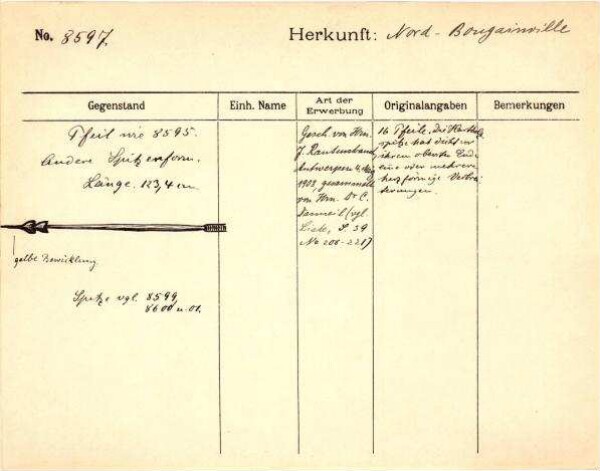 No. 8597.
Herkunft: Nord-Bougainville
Gegenstand
Einh. Name
Art der Erwerbung
Originalangaben
Bemerkungen
Pfeil wie 8595.
Andere Spitzenform.
Länge. 123,4 cm
gelbe Bewicklung
Spitze vgl. 8599,
8600 u. 01.
Gesch. von Hrn.
J. Rautenstrauch,
Antwerpen
1903, gesammelt
von Hrn. Dr C.
(vgl.
Liste, S. 39
No 206-221)
16 Pfeile, die Hartholz
spitze hat dicht vor
ihrem obersten Ende
eine oder mehrere
herzförmige Verbrei
terungen.